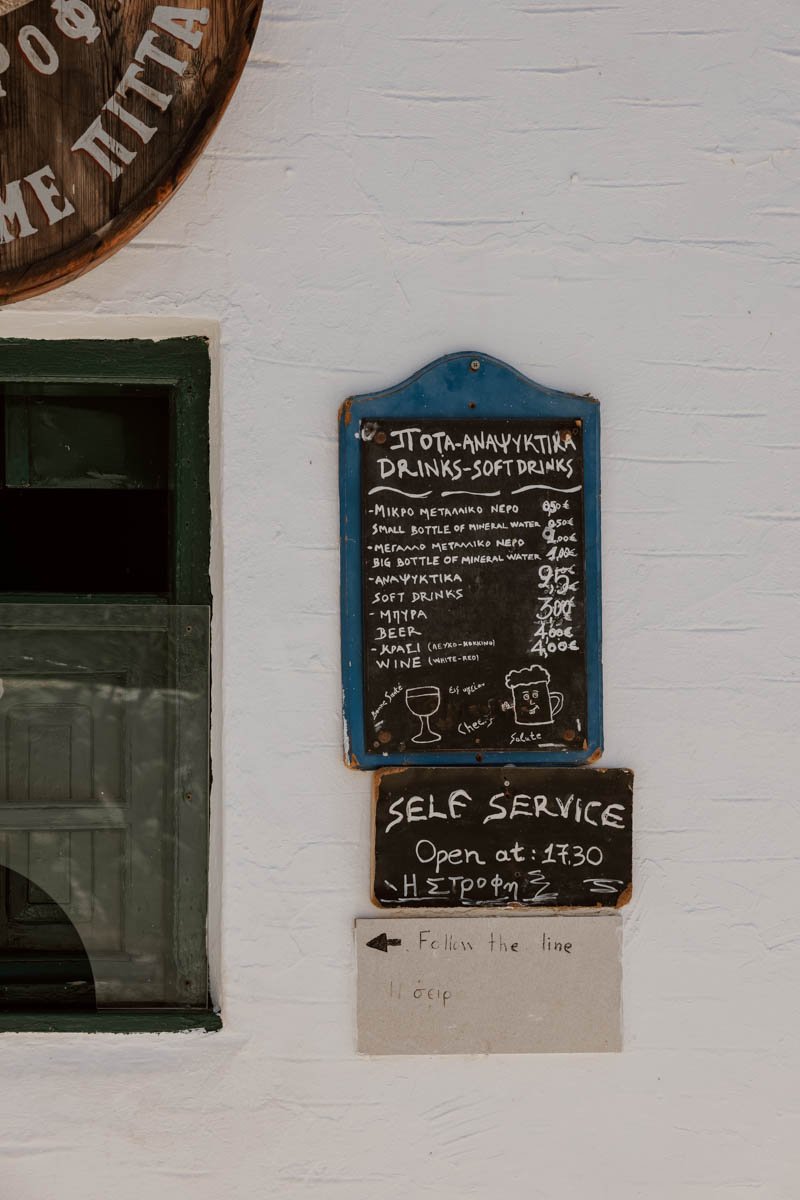 ΡΟΦ
ΜΕ ΠΙΤΤΑ
ΠΟΤΑ-ΑΝΑΨΥΚΤΙΚΑ
DRINKS-SOFT DRINKS
-ΜΙΚΡΟ ΜΕΤΑΛΛΙΚΟ ΝΕΡΟ
SMALL BOTTLE OF MINERAL WATER 0,50€
-ΜΕΓΑΛΛΟ ΜΕΤΑΛΛΙΚΟ ΝΕΡΟ
BIG BOTTLE OF MINERAL WATER 1,00€
-ΑΝΑΨΥΚΤΙΚΑ
SOFT DRINKS
-ΜΠΥΡΑ
BEER 4,00€
-ΚΡΑΣΙ (ΛΕΥΚΟ-ΚΟΚΚΙΝΟ) 4,00€
WINE (WHITE-RED)
Cheers
Salute
SELF SERVICE
Open at: 17.30
Η ΣΤροφη
Follow the line
Η σειρ